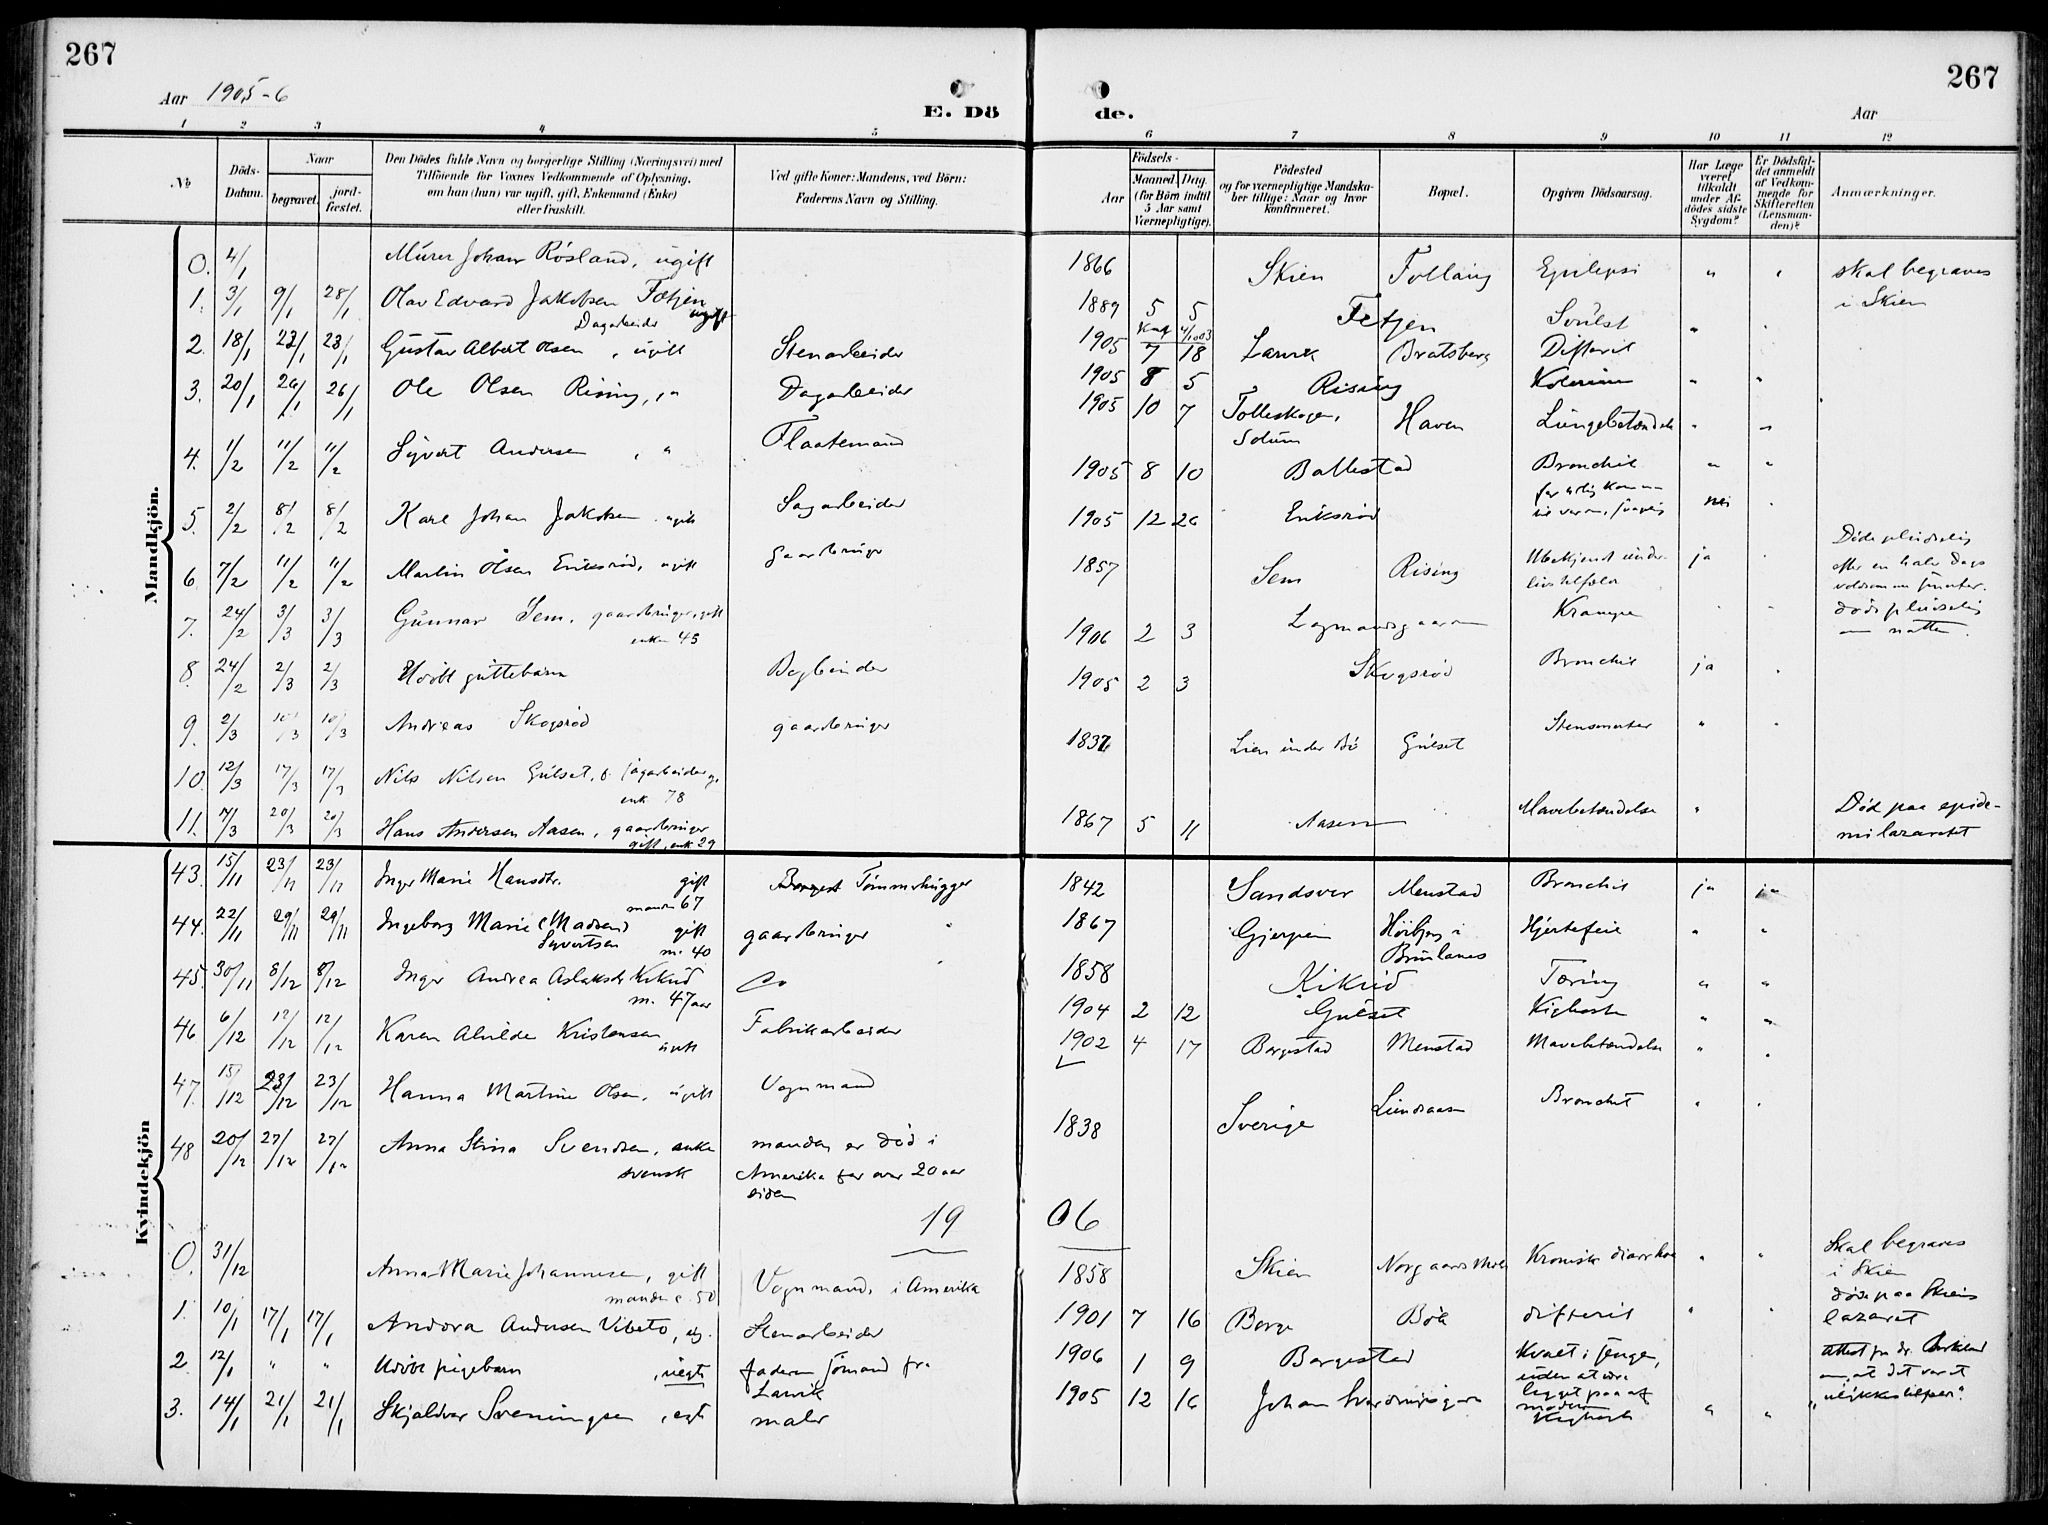 267
267
Aar 1905-6
E. Dö
de.
Aar
1 2 3 4 5 6 7 8 9 10 11 12
No
Döds-Datum.
Naar
begravet.
jord-fæstet.
Den Dödes fulde Navn og borgerlige Stilling (Næringsvei) med
Tilföiende for Voxnes Vedkommende af Oplysning,
om han (hun) var ugift, gift, Enkemand (Enke)
eller fraskilt.
Ved gifte Koner: Mandens, ved Börn:
Faderens Navn og Stilling.
Aar
Födsels-
Maaned. Dag.
(for Börn indtil
5 Aar samt
Værnepligtige).
Födested
og for værnepligtige Mandska-
ber tillige: Naar og hvor
konfirmeret.
Bopæl.
Opgiven Dödsaarsag.
Har Læge
været
tilkaldt
under Af-
dödes sidste
Sygdom?
Er Dödsfal-
det anmeldt
af Vedkom-
mende for
Skifteretten
(Lensman-
den)?
Anmærkninger.
Mandkjön.
0. 4/1 Murer Johan Rösland, ugift 1866 Skien Follaug Epilepsi " " skal begraves
i Skien
1. 3/1 9/1 28/1 Olav Edvard Jakobsen Fetjen ugift 1889 5 5 Fetjen Svulst " "
Dagarbeider
Konf 4/10 03
2. 18/1 23/1 23/1 Gustav Albert Olsen, ugift Stenarbeider 1905 7 18 Larvik Bratsberg Difterit
3. 20/1 26/1 26/1 Ole Olsen Rising, " Dagarbeider 1905 8 5 Rising Kolerine " "
4. 1/2 11/2 11/2 Syvert Andersen, " Flaatemand 1905 10 7 Tolleskogen, Solum Haven Lungebetændelse " "
5. 2/2 8/2 8/2 Karl Johan Jakobsen, ugift Sagarbeider 1905 8 10 Bollestad Bronchit " "
6. 7/2 11/2 11/2 Martin Olsen Eriksröd, ugift gaardbruger 1905 12 26 Eriksröd for tidlig kommen nei
7. 24/2 3/3 3/3 Gunnar Sem, gaardbruger, gift 1857 Sem Rising Ubekjendt under- ja Döde pludselig
livstilfælde efter en halv Dags
enken 45 voldsomme smerter.
8. 24/2 2/3 2/3 Udöbt guttebarn Bogbinder 1906 2 3 Lagmandsgaarden Krampe döde pludselig
om natten.
9. 2/3 10/3 10/3 Andreas Skogsröd gaardbruger 1905 2 3 Skogsröd Bronchit ja
10. 12/3 17/3 17/3 Nils Nilsen Gulset, f. sagarbeider, g. 1837 Lien under Bö Gulset Stensmerter "
enk 78
11. 14/3 20/3 20/3 Hans Andersen Aasen, gaardbruger 1867 5 11 Aasen Mavebetændelse " Död paa epide-
gift, enk 29 milazarettet
Kvindekjön
43. 15/11 23/11 23/11 Inger Marie Hansdtr. gift Tömmerhugger 1842 Sandsver Menstad Bronchit ja ja
manden 67
44. 22/11 29/11 29/11 Ingeborg Marie (Madsen) gift gaardbruger 1867 Gjerpen Höibjerg i Hjertefeil " "
Syvertsen m. 40 Brunlanes
45. 30/11 8/12 8/12 Inger Andrea Aslaksdtr Kikud Do 1858 Kikud Tæring " "
m. 47 aar
46 6/12 12/12 12/12 Karen Alvilde Kristensen ugift Fabrikarbeider 1904 2 12 Gulset Kighoste " "
47. 15/12 23/12 23/12 Hanna Martine Olsen, ugift Vognmand 1902 4 17 Borgestad Menstad Mavebetændelse "
48 20/12 27/12 27/12 Anna Stina Svendsen, enke manden er död i 1838 Sverige Lundsaasen Bronchit "
svensk Amerika for over 20 aar
siden
19 06
0. 31/12 Anna Marie Johannesen, gift Vognmand, i Amerika 1858 Skien Kronisk diarrhoe " " Skal begraves
manden c. 50 i Skien
1. 10/1 17/1 17/1 Andora Andersen Vibeto, eg. Stenarbeider 1901 7 16 Borge Böle difterit " " döde paa Skiens
lazaret
2 12/1 " " Udöbt pigebarn, uegte faderen sömand fra Larvik 1906 1 9 Borgestad Kvalt i sengen, Attest fra dr.
uden at være om, at det var et
ligget paa af "ulykkestilfælde".
moderen
3. 14/1 21/1 21/1 Skjoldvor Sveningsen, egte maler 1905 12 16 Kighoste " "